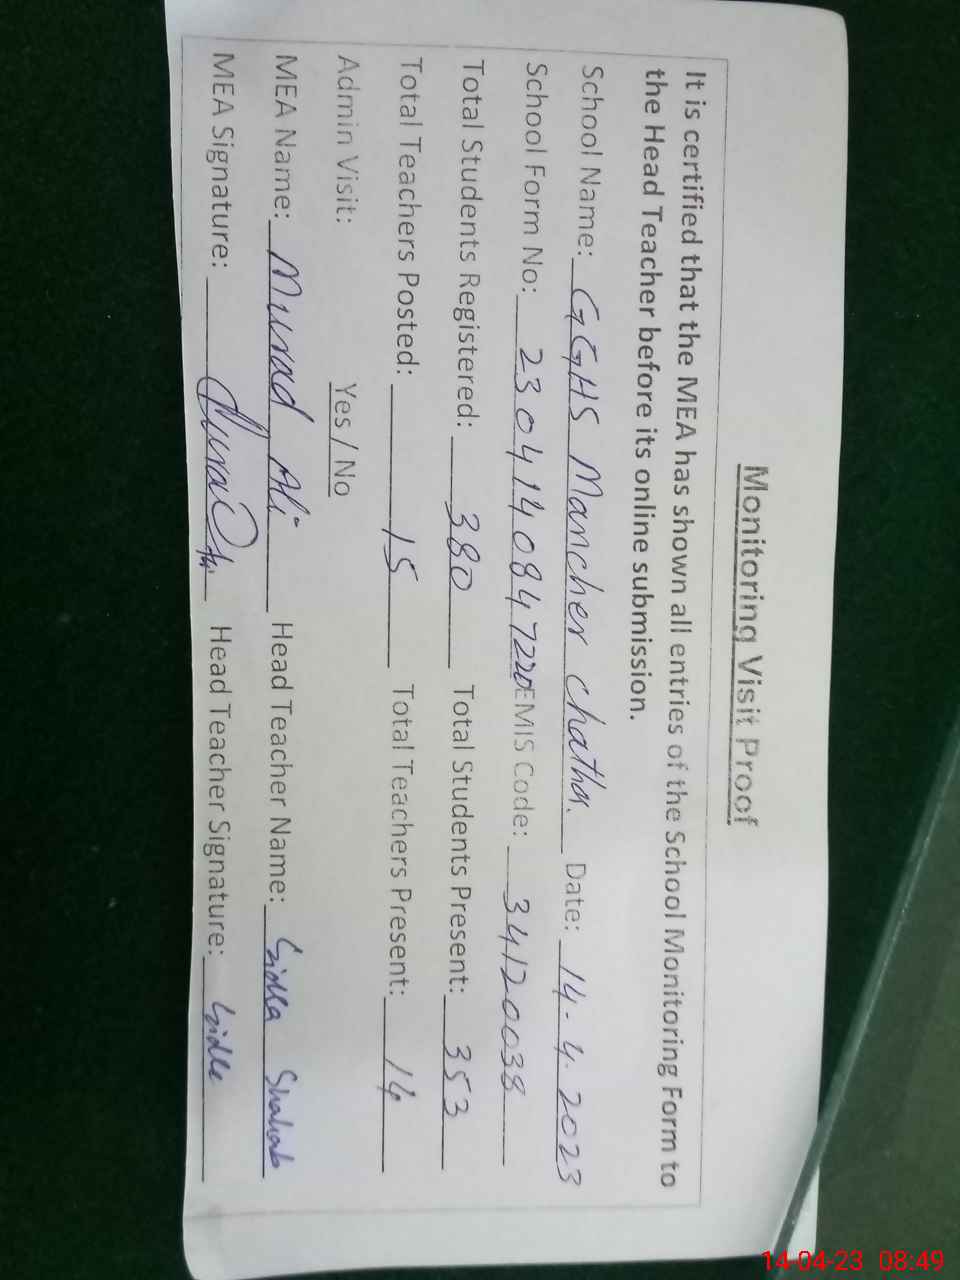 Monitoring Visit Proof
It is certified that the MEA has shown all entries of the School Monitoring Form to
the Head Teacher before its online submission.
School Name: GGHS Mancher Chatha Date: 14.4.2023
School Form No: 2304140847220 EMIS Code: 34120038
Total Students Registered: 380 Total Students Present: 353
Total Teachers Posted: 15 Total Teachers Present: 14
Admin Visit: Yes / No
MEA Name: Murad Ali Head Teacher Name: Sidra
MEA Signature: Head Teacher Signature:
14-04-23 08:49